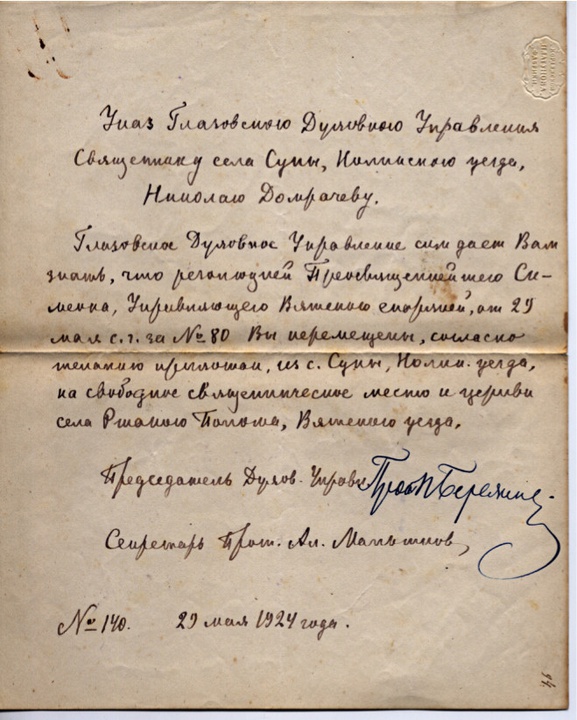 Указ Глазовского Духовного Управления
Священнику села Суны, Нолинского уезда,
Николаю Домрачеву.
Глазовское Духовное Управление сим дает Вам
знать, что резолюцией Преосвященнейшего Си-
меона, Управляющего Вятскою епархией, от 29
мая с. г. за № 80 Вы перемещены, согласно
желанию прихожан, из с. Суны, Нолин. уезда,
на свободное священническое место к церкви
села Ржаного Полома, Вятского уезда.
Председатель Духов. Управл.
Секретарь Прот. Ал.
№ 140. 29 мая 1924 года.